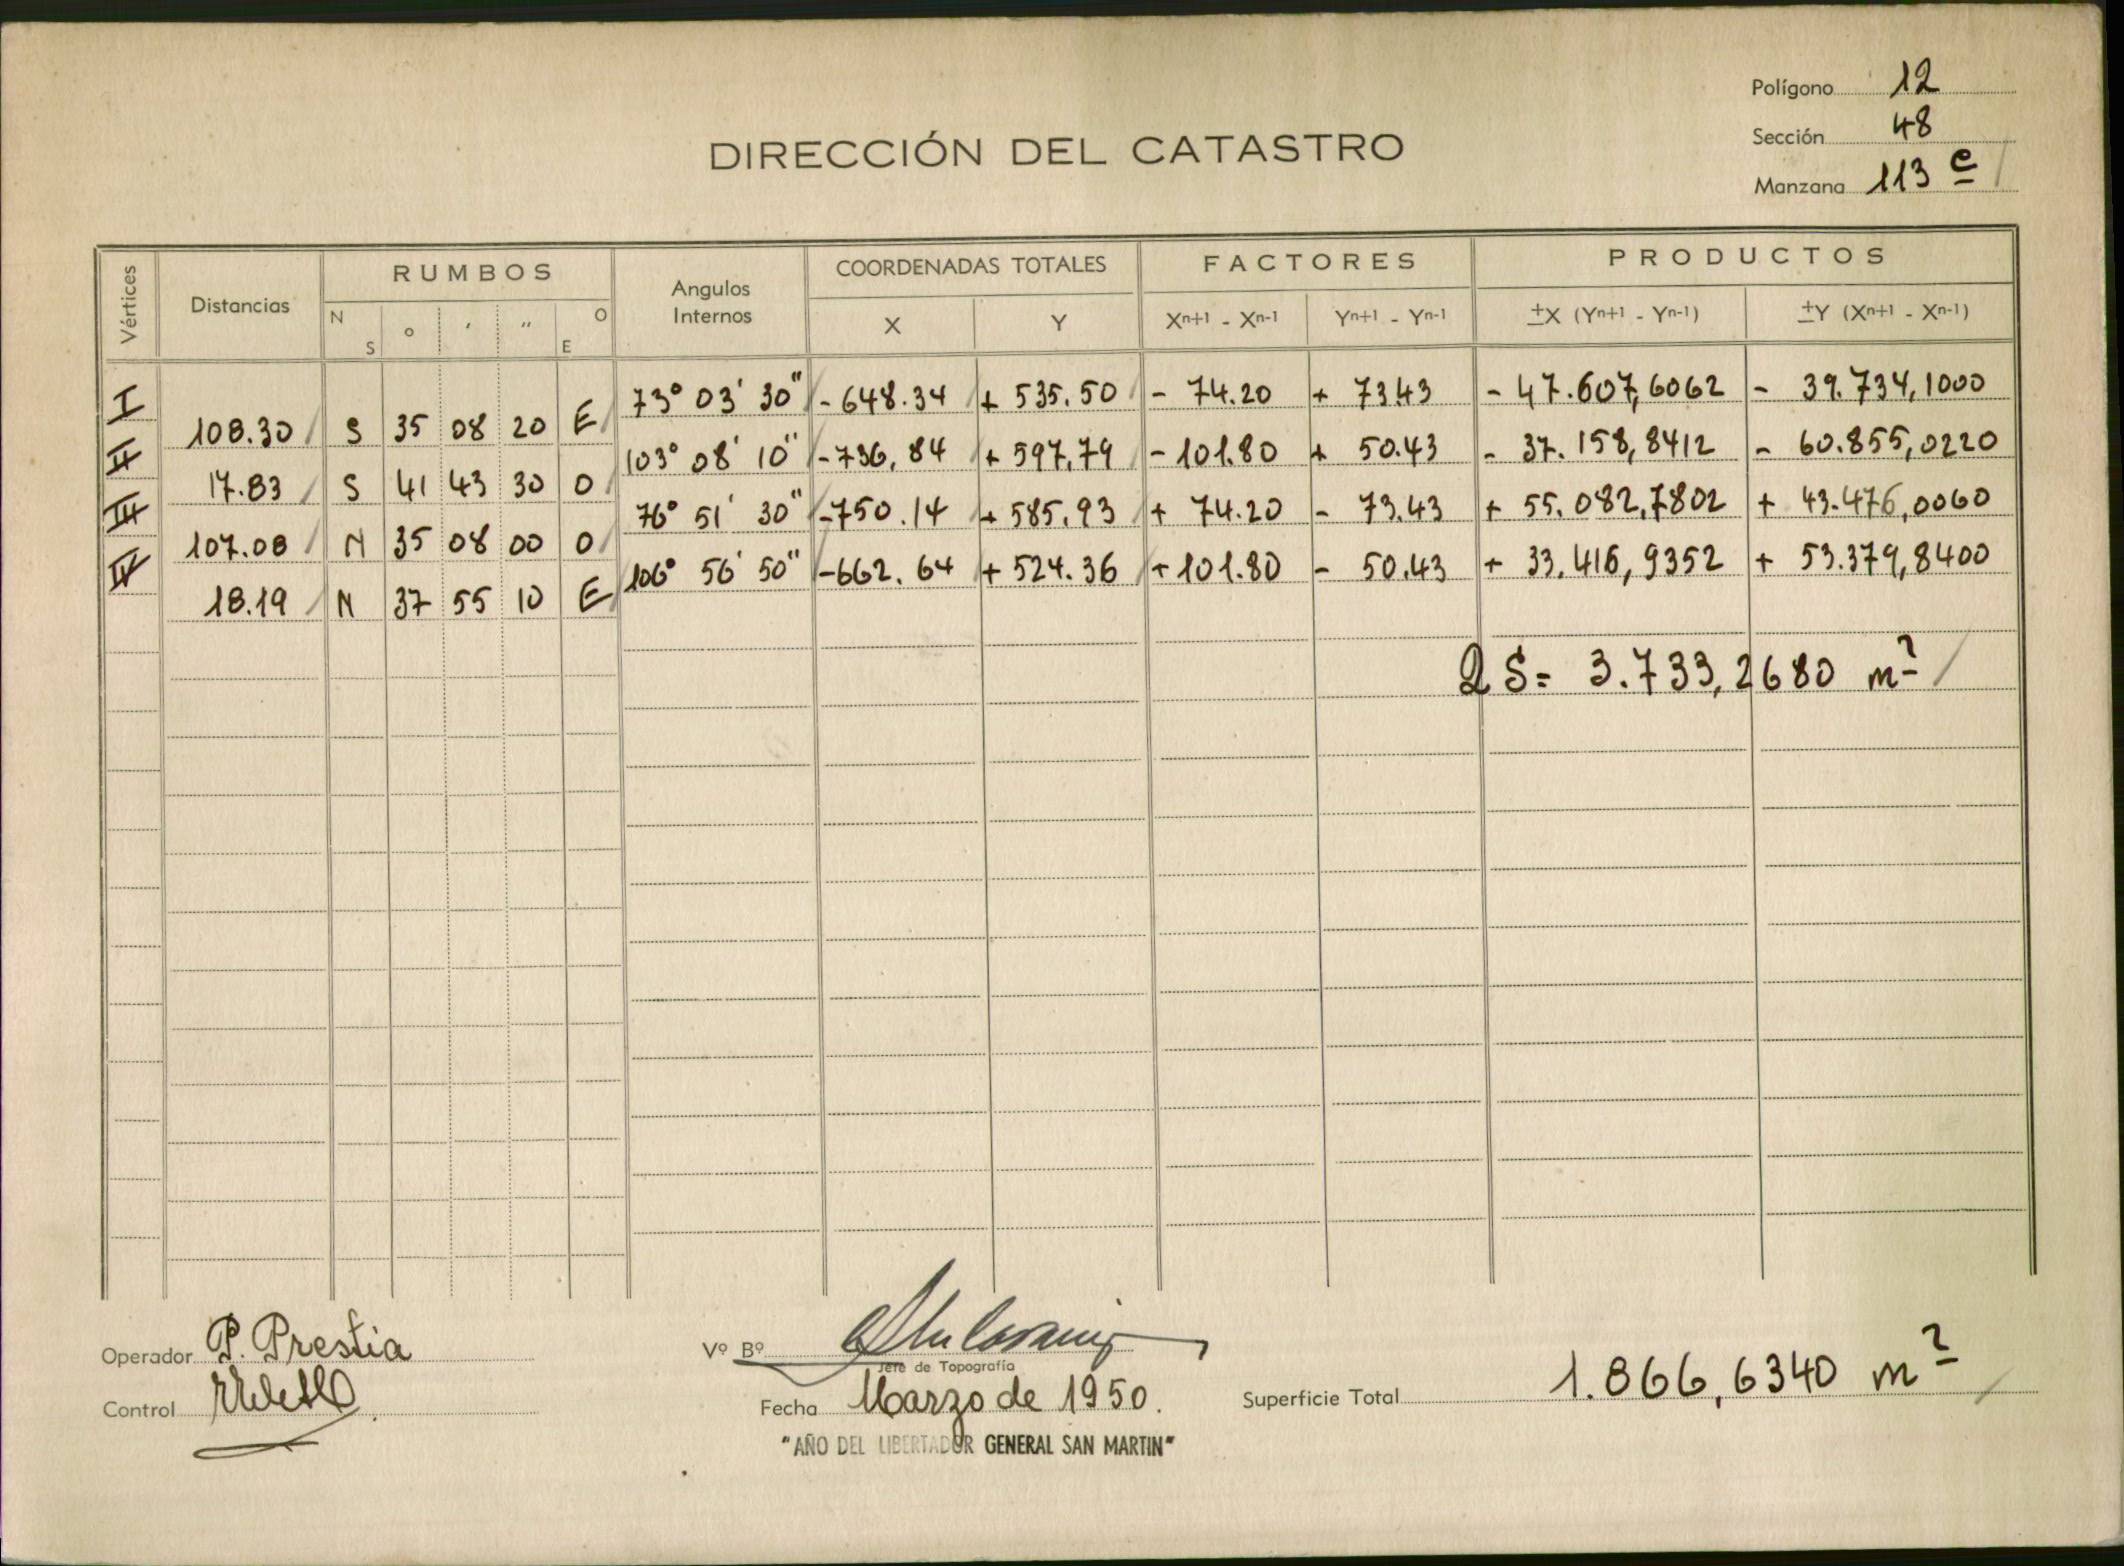 Polígono 12
Sección 48
Manzana 113 e
DIRECCIÓN DEL CATASTRO
Vértices Distancias RUMBOS Angulos Internos COORDENADAS TOTALES FACTORES PRODUCTOS
N S ° ' '' O E X Y Xn+1 - Xn-1 Yn+1 - Yn-1 ±X (Yn+1 - Yn-1) ±Y (Xn+1 - Xn-1)
I 73° 03' 30" -648.34 + 535.50 - 74.20 + 73.43 - 47.607,6062 - 39.734,1000
108.30 S 35 08 20 E
II 103° 08' 10" -736,84 + 597,79 - 101.80 + 50.43 - 37.158,8412 - 60.855,0220
17.83 S 41 43 30 O
III 76° 51' 30" -750.14 + 585,93 + 74.20 - 73.43 + 55.082,7802 + 43.476,0060
107.08 N 35 08 00 O
IV 106° 56' 50" -662.64 + 524.36 + 101.80 - 50.43 + 33.416,9352 + 53.379,8400
18.19 N 37 55 10 E
2 S = 3.733,2680 m²
Operador P. Prestia
Vº Bº
Jefe de Topografía
Control
Fecha Marzo de 1950.
Superficie Total 1.866,6340 m²
"AÑO DEL LIBERTADOR GENERAL SAN MARTIN"